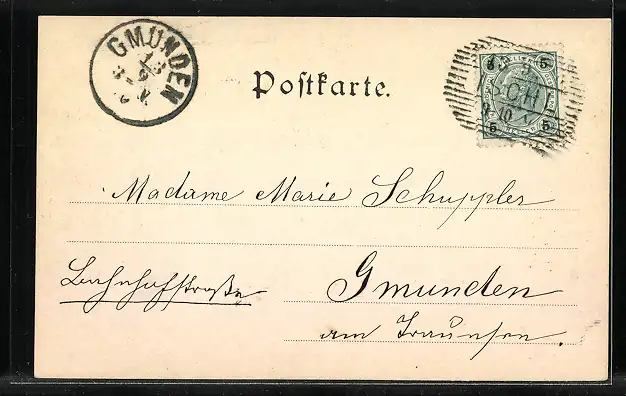 GMUNDEN
13
9
Postkarte.
5 5
5 5
Madame Marie Schuppler
Bahnhofstraße
Gmunden
am Traunsee.